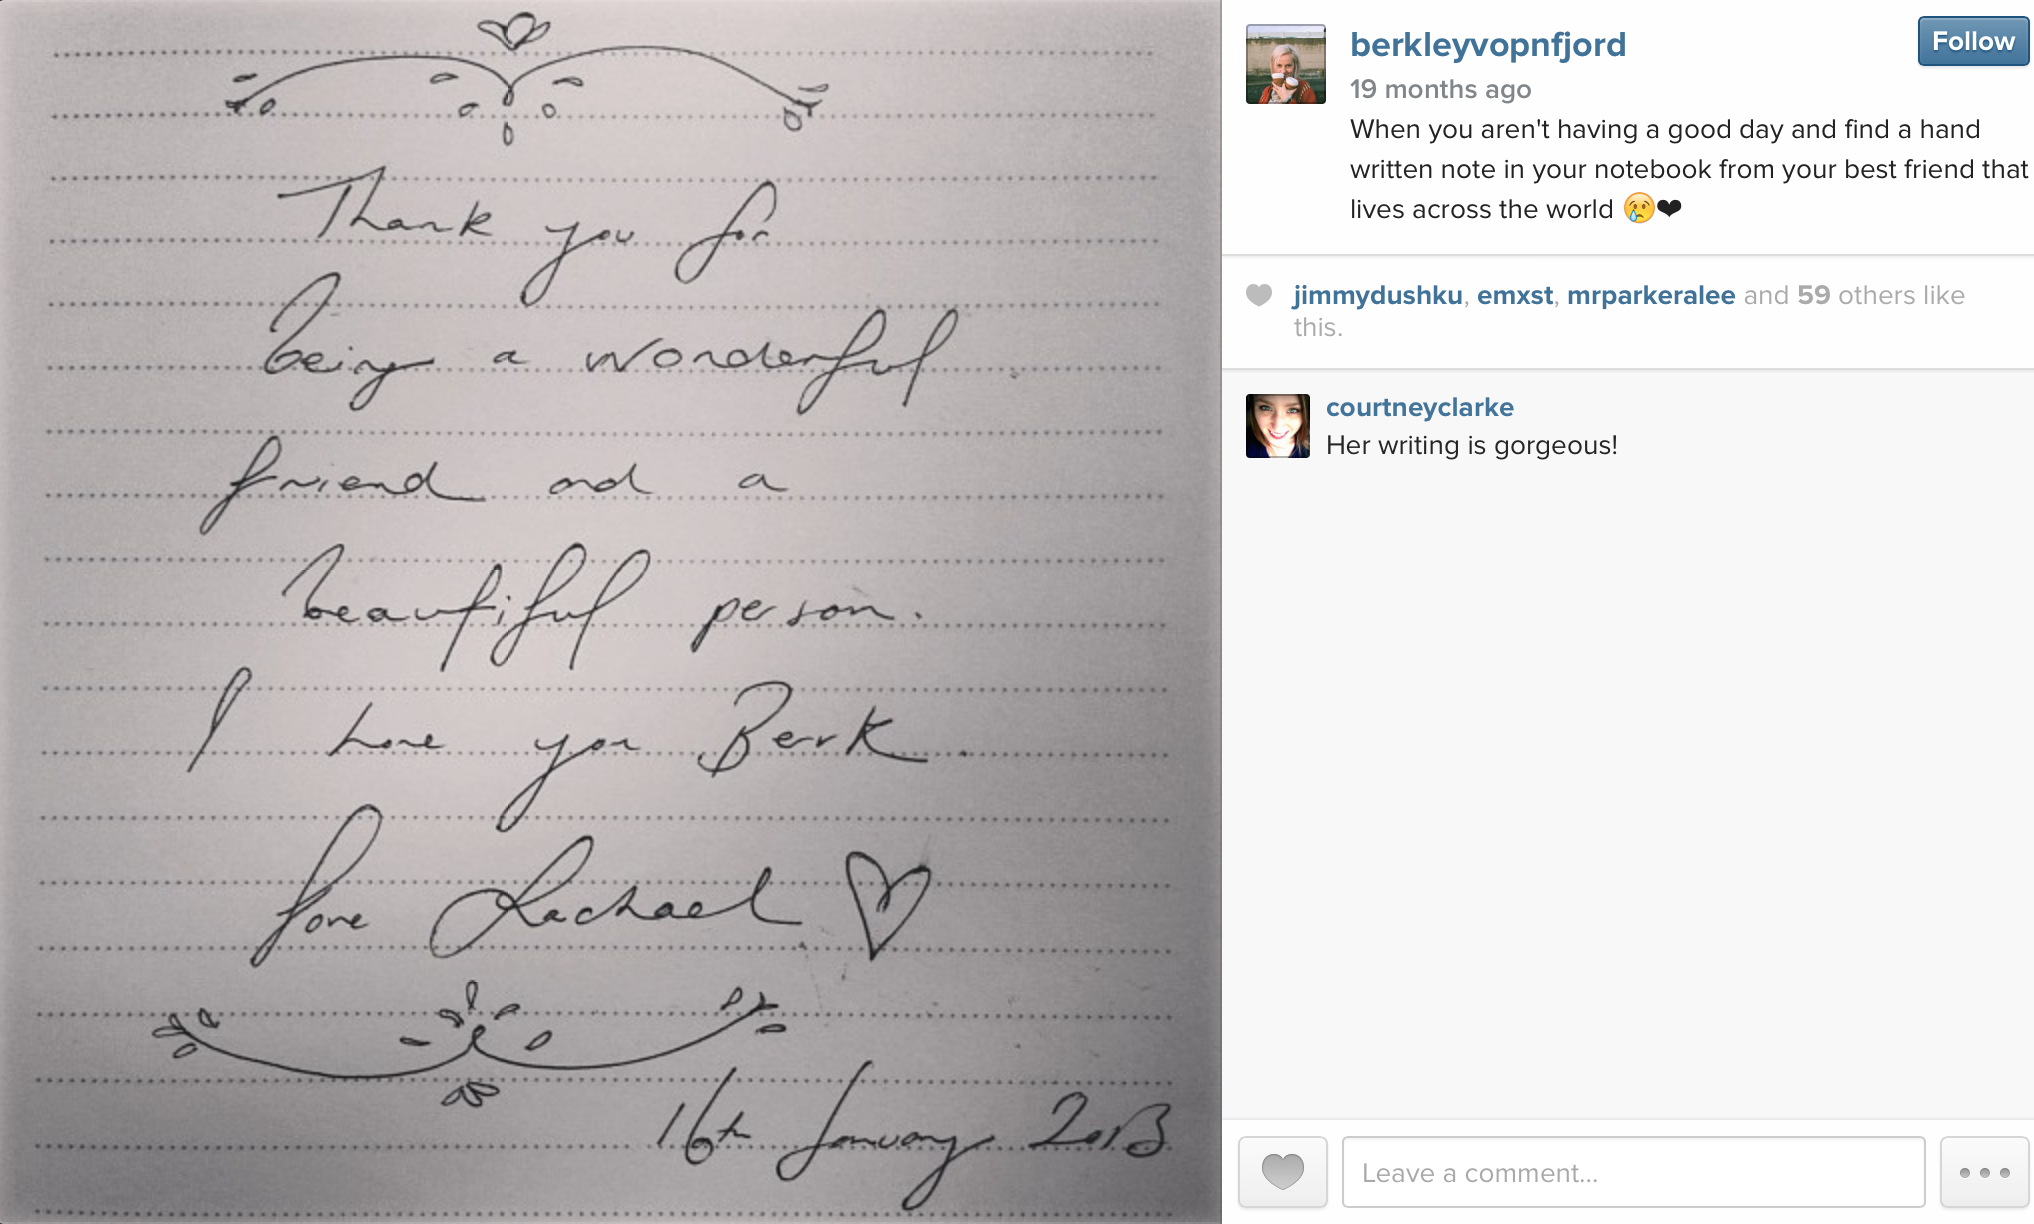 Thank you for
being a wonderful
friend and a
beautiful person.
I love you Berk.
Love Rachael
16th January 2013
berkleyvopnfjord
Follow
19 months ago
When you aren't having a good day and find a hand
written note in your notebook from your best friend that
lives across the world 😢❤
jimmydushku, emxst, mrparkeralee and 59 others like
this.
courtneyclarke
Her writing is gorgeous!
Leave a comment...